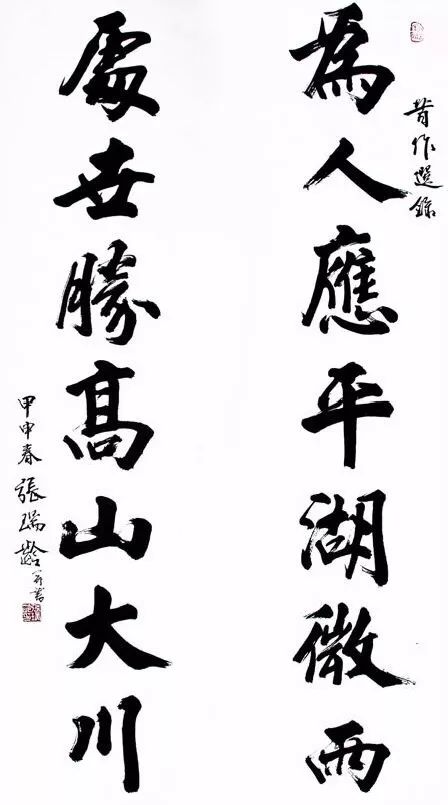 昔作選錄
為人應平湖微雨
處世勝高山大川
甲申春張瑞齡并書